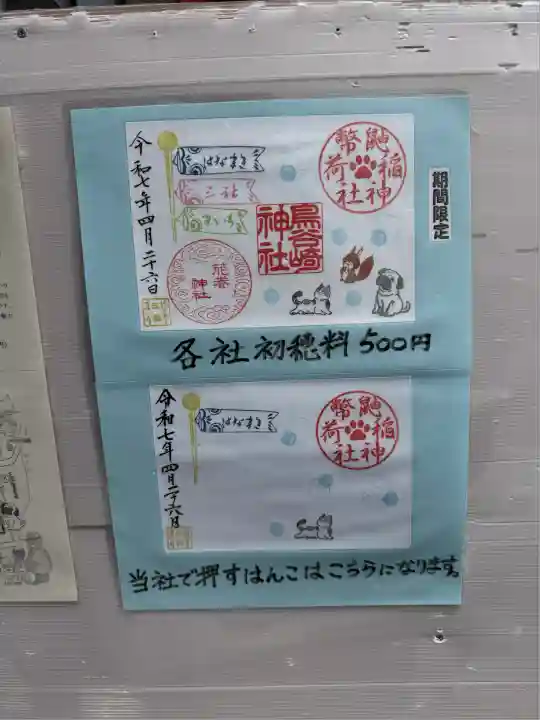 令和七年四月二十六日
はなまき
三社
めぐり
鼬幣稲荷神社
鳥谷崎神社
花巻神社
期間限定
各社初穂料500円
令和七年四月二十六日
はなまき
鼬幣稲荷神社
当社で押すはんこはこちらになります。